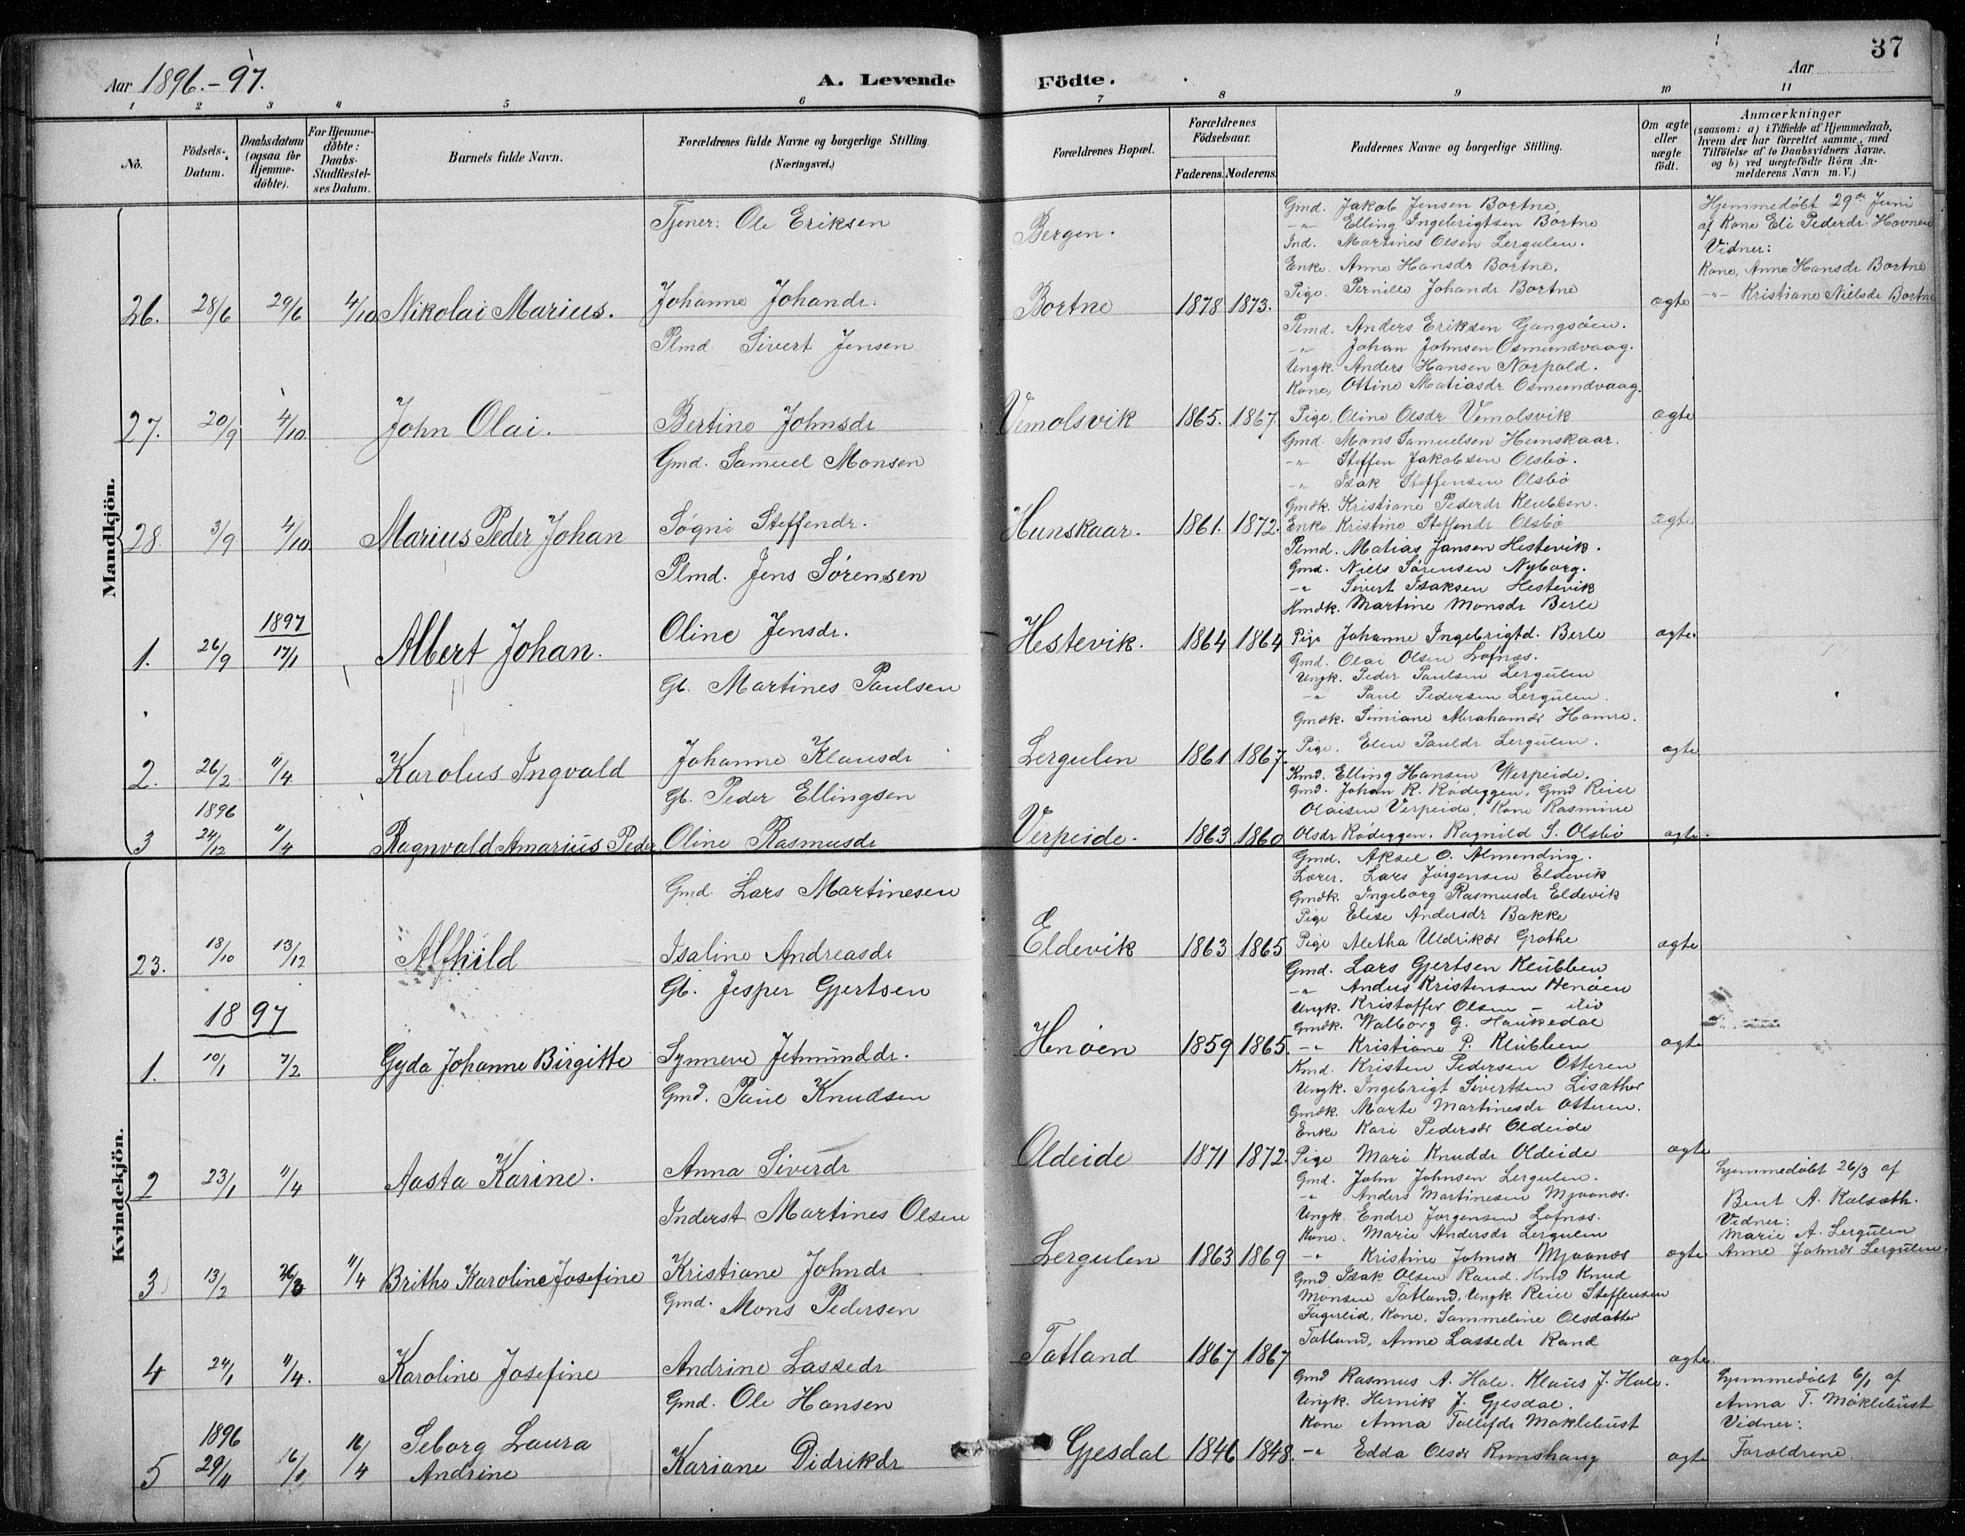 37
Aar 1896.-97.
A. Levende Födte.
Aar
1 2 3 4 5 6 7 8 9 10 11
No.
Födsels-Datum.
Daabsdatum (ogsaa for Hjemme-döbte).
For Hjemme-döbte: Daabs-Stadfæstel-ses Datum.
Barnets fulde Navn.
Forældrenes fulde Navne og borgerlige Stilling. (Næringsvei.)
Forældrenes Bopæl.
Forældrenes Födselsaar.
Faderens. Moderens.
Faddernes Navne og borgerlige Stilling.
Om ægte eller uægte födt.
Anmærkninger
(saasom: a) i Tilfælde af Hjemmedaab, hvem der har forrettet samme, med Tilföielse af to Daabsvidners Navne. og b) ved uægtefödte Börn An-melderens Navn m. V.)
Mandkjön.
Tjener: Ole Eriksen
Bergen.
Gmd. Jakob Jensen Bortne
-"- Elling Ingebrigtsen Bortne
Ind. Martines Olsen Lergulen.
Enke. Anne Hansdr Bortne.
Pige. Pernille Johandr Bortne
Hjemmedøbt 29de Juni
af Kone Eli Pedersdr. Havnen
Vidner:
Kone, Anne Hansdr Bortne
-"- Kristiane Nielsdr Bortne
26. 28/6 29/6 4/10 Nikolai Marius. Johanne Johandr. Bortne 1878 1873. ægte
Plmd Sivert Jensen
Plmd. Anders Eriksen Gangsøen.
-"- Johan Johnsen Osmundvaag.
Ungk. Anders Hansen Norpold.
Kone, Ottine Matiasdr Osmundvaag.
27. 20/9 4/10 John Olai. Bertine Johnsdr Vemolsvik 1865. 1867. Pige Oline Olsdr Vemolsvik ægte
Gmd. Samuel Monsen
Gmd. Mons Samuelsen Hunskaar.
-"- Steffen Jakobsen Olsbö.
-"- Isak Steffensen Olsbö
Gmdk. Kristiane Pederdr Klubben.
28. 3/9 4/10 Marius Peder Johan Søgni Steffendr. Hunskaar. 1861. 1872. Enke Kristine Steffendr Olsbö ægte
Plmd. Jens Sörensen
Plmd. Matias Jansen Hestevik.
Gmd. Niels Sørensen Nyborg.
-"- Sivert Isaksen Hestevik
Hmdk. Martine Monsdr Berle
1897
1. 26/9 17/1 Albert Johan. Oline Jensdr. Hestevik. 1864 1864 Pige Johanne Ingebrigtd. Berle ægte
Gb. Martines Paulsen
Gmd. Olai Olsen Lofnæs.
Ungk. Peder Paulsen Lergulen
-"- Paul Pedersen Lergulen.
Gmdk. Simiane Abrahamdr Hamre.
2. 26/2 11/4 Karolus Ingvald Johanne Klausdr Lergulen 1861 1867. Pige. Elen Pauldr Lergulen. ægte
Gb. Peder Ellingsen
Kmd. Elling Hansen Verpeide.
Gmd. Johan R. Rödeggen, Gmd Reier
Olaisen Verpeide, Kone Rasmine
1896
3 24/12 11/4 Ragnvald Amarius Peder Oline Rasmusdr Verpeide. 1863 1860 Olsdr Rödeggen. Ragnild S. Olsbö ægte.
Kvindekjön.
Gmd. Lars Martinesen
Gmd. Aksel O. Almending.
Lærer. Lars Jørgensen Eldevik
Gmdk. Ingeborg Rasmusdr Eldevik
Pige Elise Andersdr Bakke
23. 18/10 13/12 Alfhild Isaline Andreasdr Eldevik 1863 1865 Pige Aletha Uldrikdr Grothe ægte
Gb. Jesper Gjertsen
Gmd. Lars Gjertsen Klubben
-"- Anders Kristensen Henöen
Ungk. Kristoffer Olsen -
Gmdk. Walborg G. Haukedal
1897
1. 10/1 7/2 Gyda Johanne Birgitte Synneve Jetmunddr. Henöen 1859 1865. -"- Kristiane P. Klubben ægte
Gmd. Paul Knudsen
Kmd. Kristen Pedersen Otteren
Ungk. Ingebrigt Sivertsen Lisæther
Gmdk. Marte Martinesdr Otteren.
Enke Kari Pedersdr Oldeide
2 23/1 11/4 Aasta Karine. Anna Siverdr Oldeide 1871 1872. Pige Mari Knuddr Oldeide ægte
Inderst Martines Olsen
Gmd. John Johnsen Lergulen.
-"- Anders Martinesen Mjaanæs.
Ungk. Endre Jørgensen Lofnæs.
Kone. Marie Andersdr Lergulen
Hjemmedøbt 26/3 af
Bent A. Kalsæth.
Vidner:
Marie A. Lergulen
Anne Johnsdr Lergulen.
3 13/2 26/3 11/4 Brithe Karoline Josefine Kristiane Johndr Lergulen 1863 1869 -"- Kristine Johnsdr Mjaanæs ægte
Gmd. Mons Pedersen
Gmd Isak Olsen Rand. Kmd Knud
Monsen Tatland, Ungk Reier Steffensen
Fagerlid, Kone, Sammeline Olsdatter
Tatland, Anne Lassedr Rand
4 24/1 11/4. Karoline Josefine Andrine Lassedr Tatland 1867 1867 ægte.
Gmd. Ole Hansen
Gmd Rasmus A. Hole. Klaus J. Hole.
Ungk. Henrik J. Gjesdal.
Kone Anna Tollefsdr Möklebust
Hjemmedöbt 6/1 af
Anna T. Möklebust
Vidner:
Forældrene.
1896
5 29/11 16/1 16/4 Seborg Laura Andrine Kariane Didrikdr Gjesdal 1846 1848. -"- Edda Olsdr Runshaug ægte